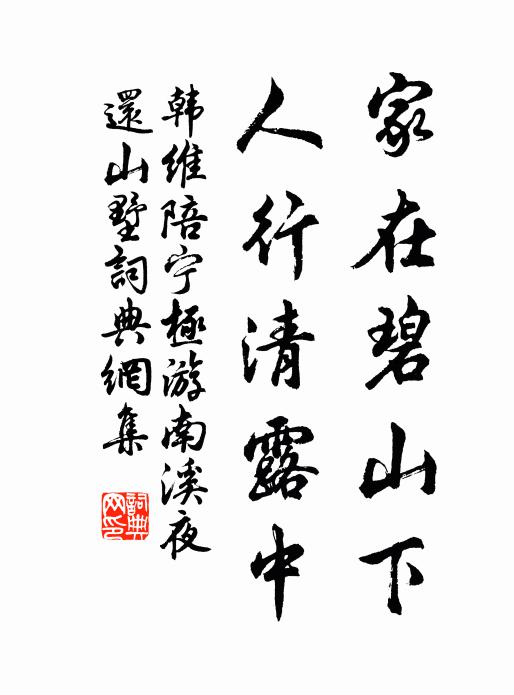 家在碧山下
人行清露中
韩维陪宁極游南溪夜
還山墅詞典網集
詞典
网印